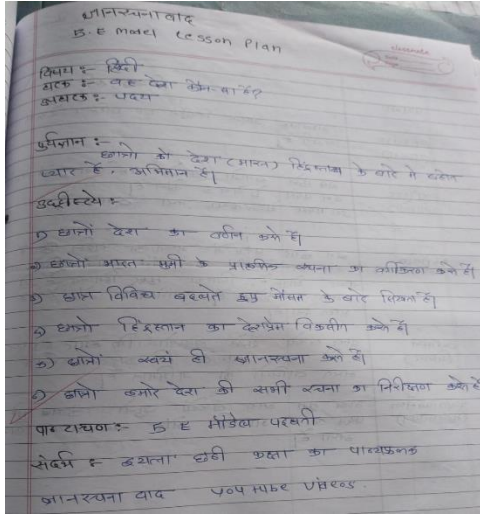 ज्ञानरचनावाद
5.E model Lesson Plan
विषय :- हिंदी
घटक :- वह देश कौन-सा है?
उपघटक :- पद्य
पुर्वज्ञान :-
छात्रो को देश (भारत) हिंदुस्तान के बारे मे बहोत
प्यार है. अभिमान है।
उद्दीष्टये :-
1) छात्रों देश का वर्णन करते हैं।
2) छात्रो भारत भुमी के प्राकृतिक रचना का वर्गीकरण करते हैं।
3) छात्र विविध बदलते हुए मौसम के बारे लिखते हैं।
4) छात्रो हिंदुस्तान का देशप्रेम विकसीत करते हैं।
5) छात्रों स्वयं ही ज्ञानरचना करते हैं।
6) छात्रो हमारे देश की सभी रचना का निरीक्षण करते हैं
पाठ टाचण :- 5 E मॉडेल पद्धती
संदर्भ :- इयत्ता छठी कक्षा का पाठ्यपुस्तक
ज्ञानरचना वाद YouTube Videos.